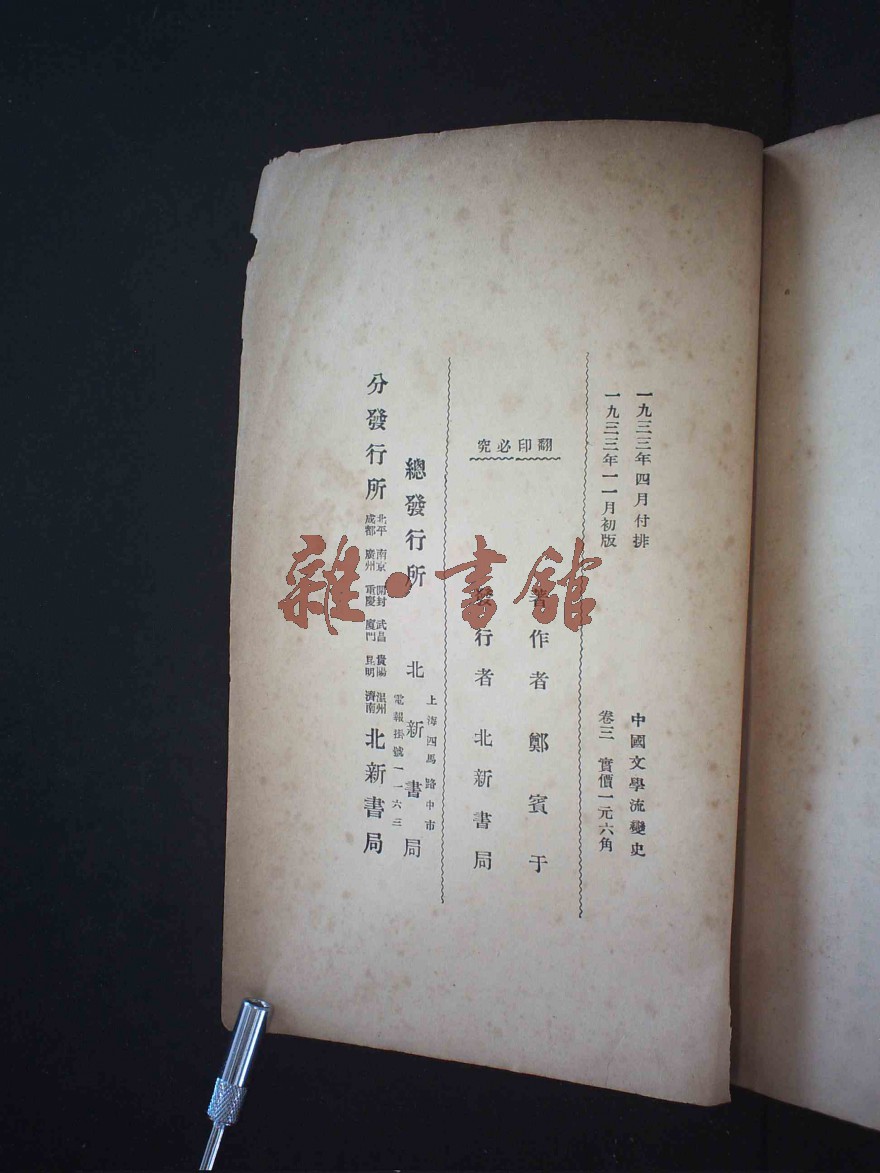 一九三三年四月付排
一九三三年一一月初版
中國文學流變史
卷三 實價一元六角
翻印必究
著作者 鄭賓于
發行者 北新書局
總發行所
上海四馬路中市
北新書局
電報掛號一一六三
分發行所
北平 南京 開封 武昌 貴陽 溫州
成都 廣州 重慶 廈門 昆明 濟南
北新書局
雜·書館